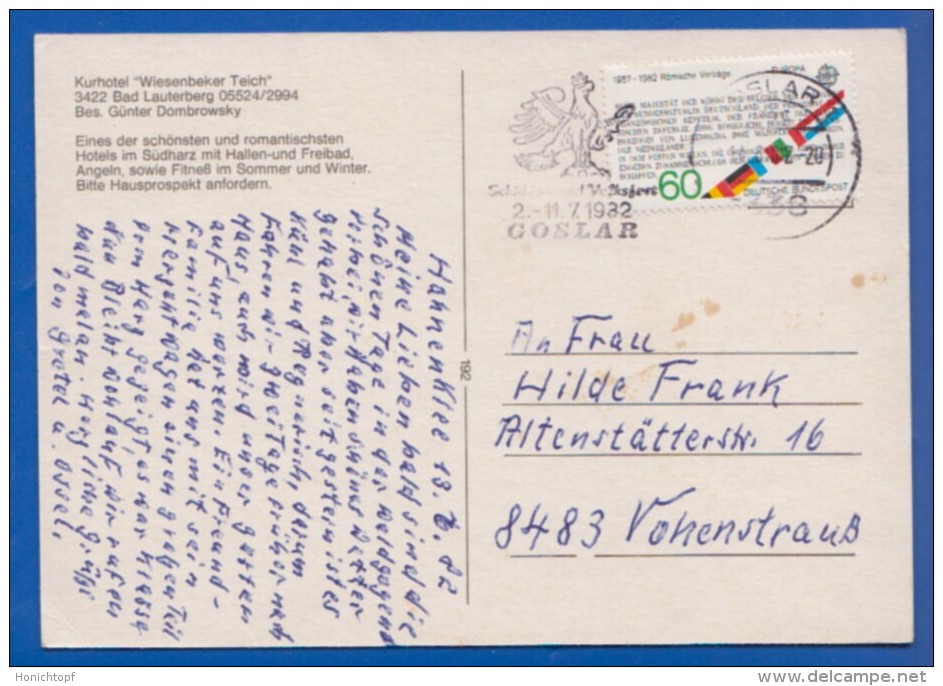 Kurhotel "Wiesenbeker Teich"
3422 Bad Lauterberg 05524/2994
Bes. Günter Dombrowsky
Eines der schönsten und romantischsten
Hotels im Südharz mit Hallen-und Freibad,
Angeln, sowie Fitneß im Sommer und Winter.
Bitte Hausprospekt anfordern.
Hahnenklee 13. 6. 82
Meine Lieben bald sind die
schönen Tage in der Waldgegend
vorbei, wir haben schönes Wetter
gehabt aber seit gestern ist es
kühl und Regnerisch, darum
fahren wir zwei Tage früher nach
Haus, auch wird unser Garten
auf uns warten. Ein Freund-
Familie hat uns mit sein
einen großen Teil
vom Harz gezeigt, es war Klasse
das bleibt wohlauf wir rufen
bald mal an. Herzliche Grüße
von Gretel u. Ossel.
192
1957-1982 Römische Verträge
EUROPA
60
DEUTSCHE BUNDESPOST
GOSLAR
Volksfest
2.-11.7.1982
GOSLAR
An Frau
Hilde Frank
Altenstätterstr. 16
8483 Vohenstrauß
Honichtopf
www.delcampe.net